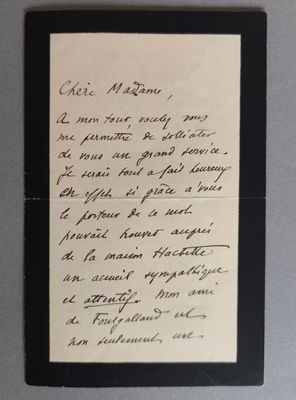 Chère Madame,
A mon tour voulez vous
me permettre de solliciter
de vous un grand service.
Je serais tout a fait heureux
en effet si grâce à vous
le porteur de ce mot
pouvait trouver auprès
de la maison Hachette
un accueil sympathique
et attentif. Mon ami
de Fontgalland est
non seulement un